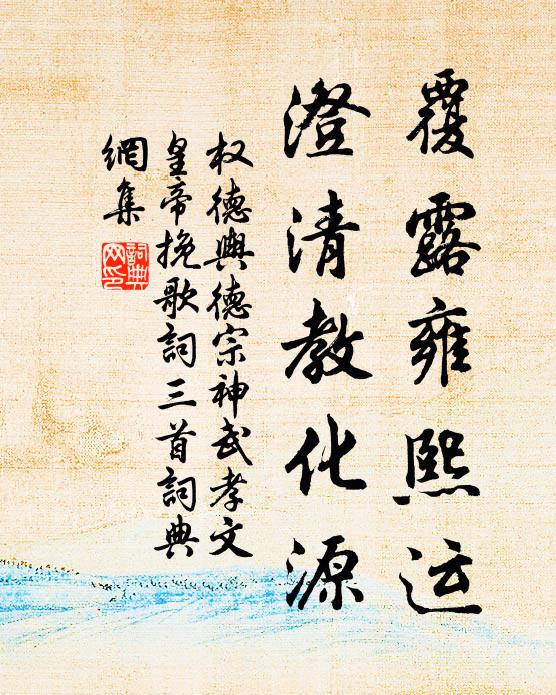 覆露雍熙运
澄清教化源
权德舆德宗神武孝文
皇帝挽歌词三首词典
網集
詞典
网印